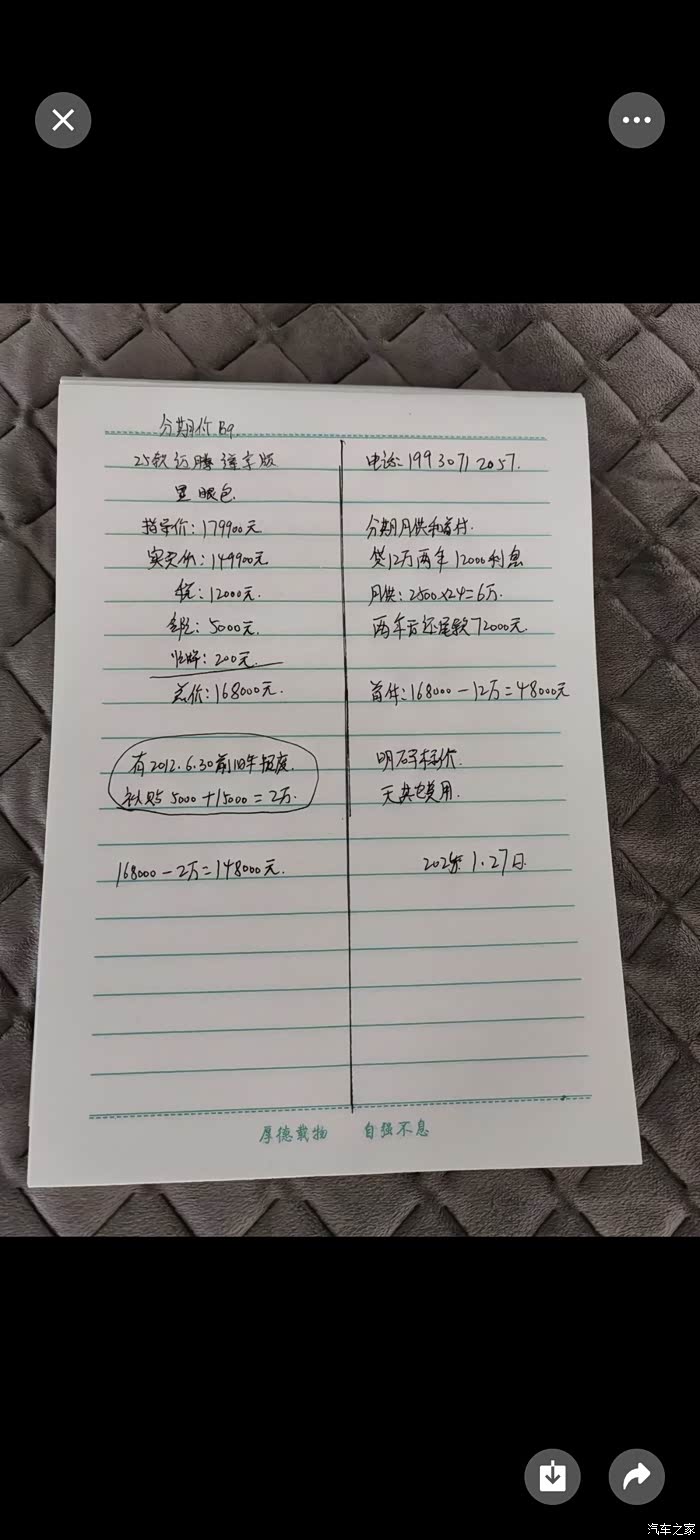 分期价 B9
25款迈腾 尊享版
黑 眼包
指导价：179900元
买卖价：149900元
税：12000元.
5000元.
200元.
总价：168000元.
有2012.6.30前旧车报废
补贴 5000+15000=2万.
168000-2万=148000元.
电话：199 3071 2057.
分期月供和首付.
贷12万两年12000利息
月供：2500×24=6万.
两年后还尾款72000元.
首付：168000-12万=48000元
明码标价
无其它费用.
2025年 1.27日
厚德载物 自强不息
汽车之家